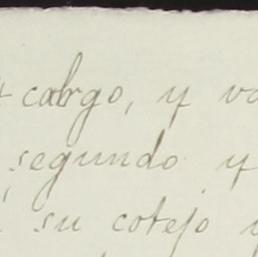 cargo, y
segundo y
su cotejo y